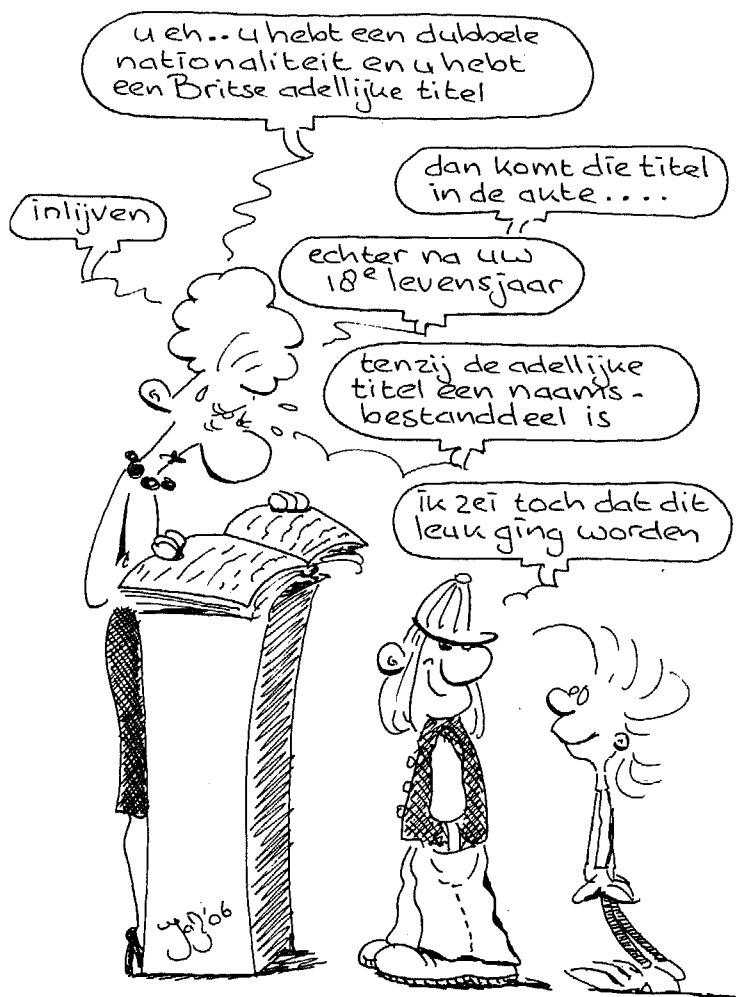 u eh.. u hebt een dubbele
nationaliteit en u hebt
een Britse adellijke titel
dan komt die titel
in de akte....
inlijven
echter na uw
18e levensjaar
tenzij de adellijke
titel een naams-
bestanddeel is
ik zei toch dat dit
leuk ging worden